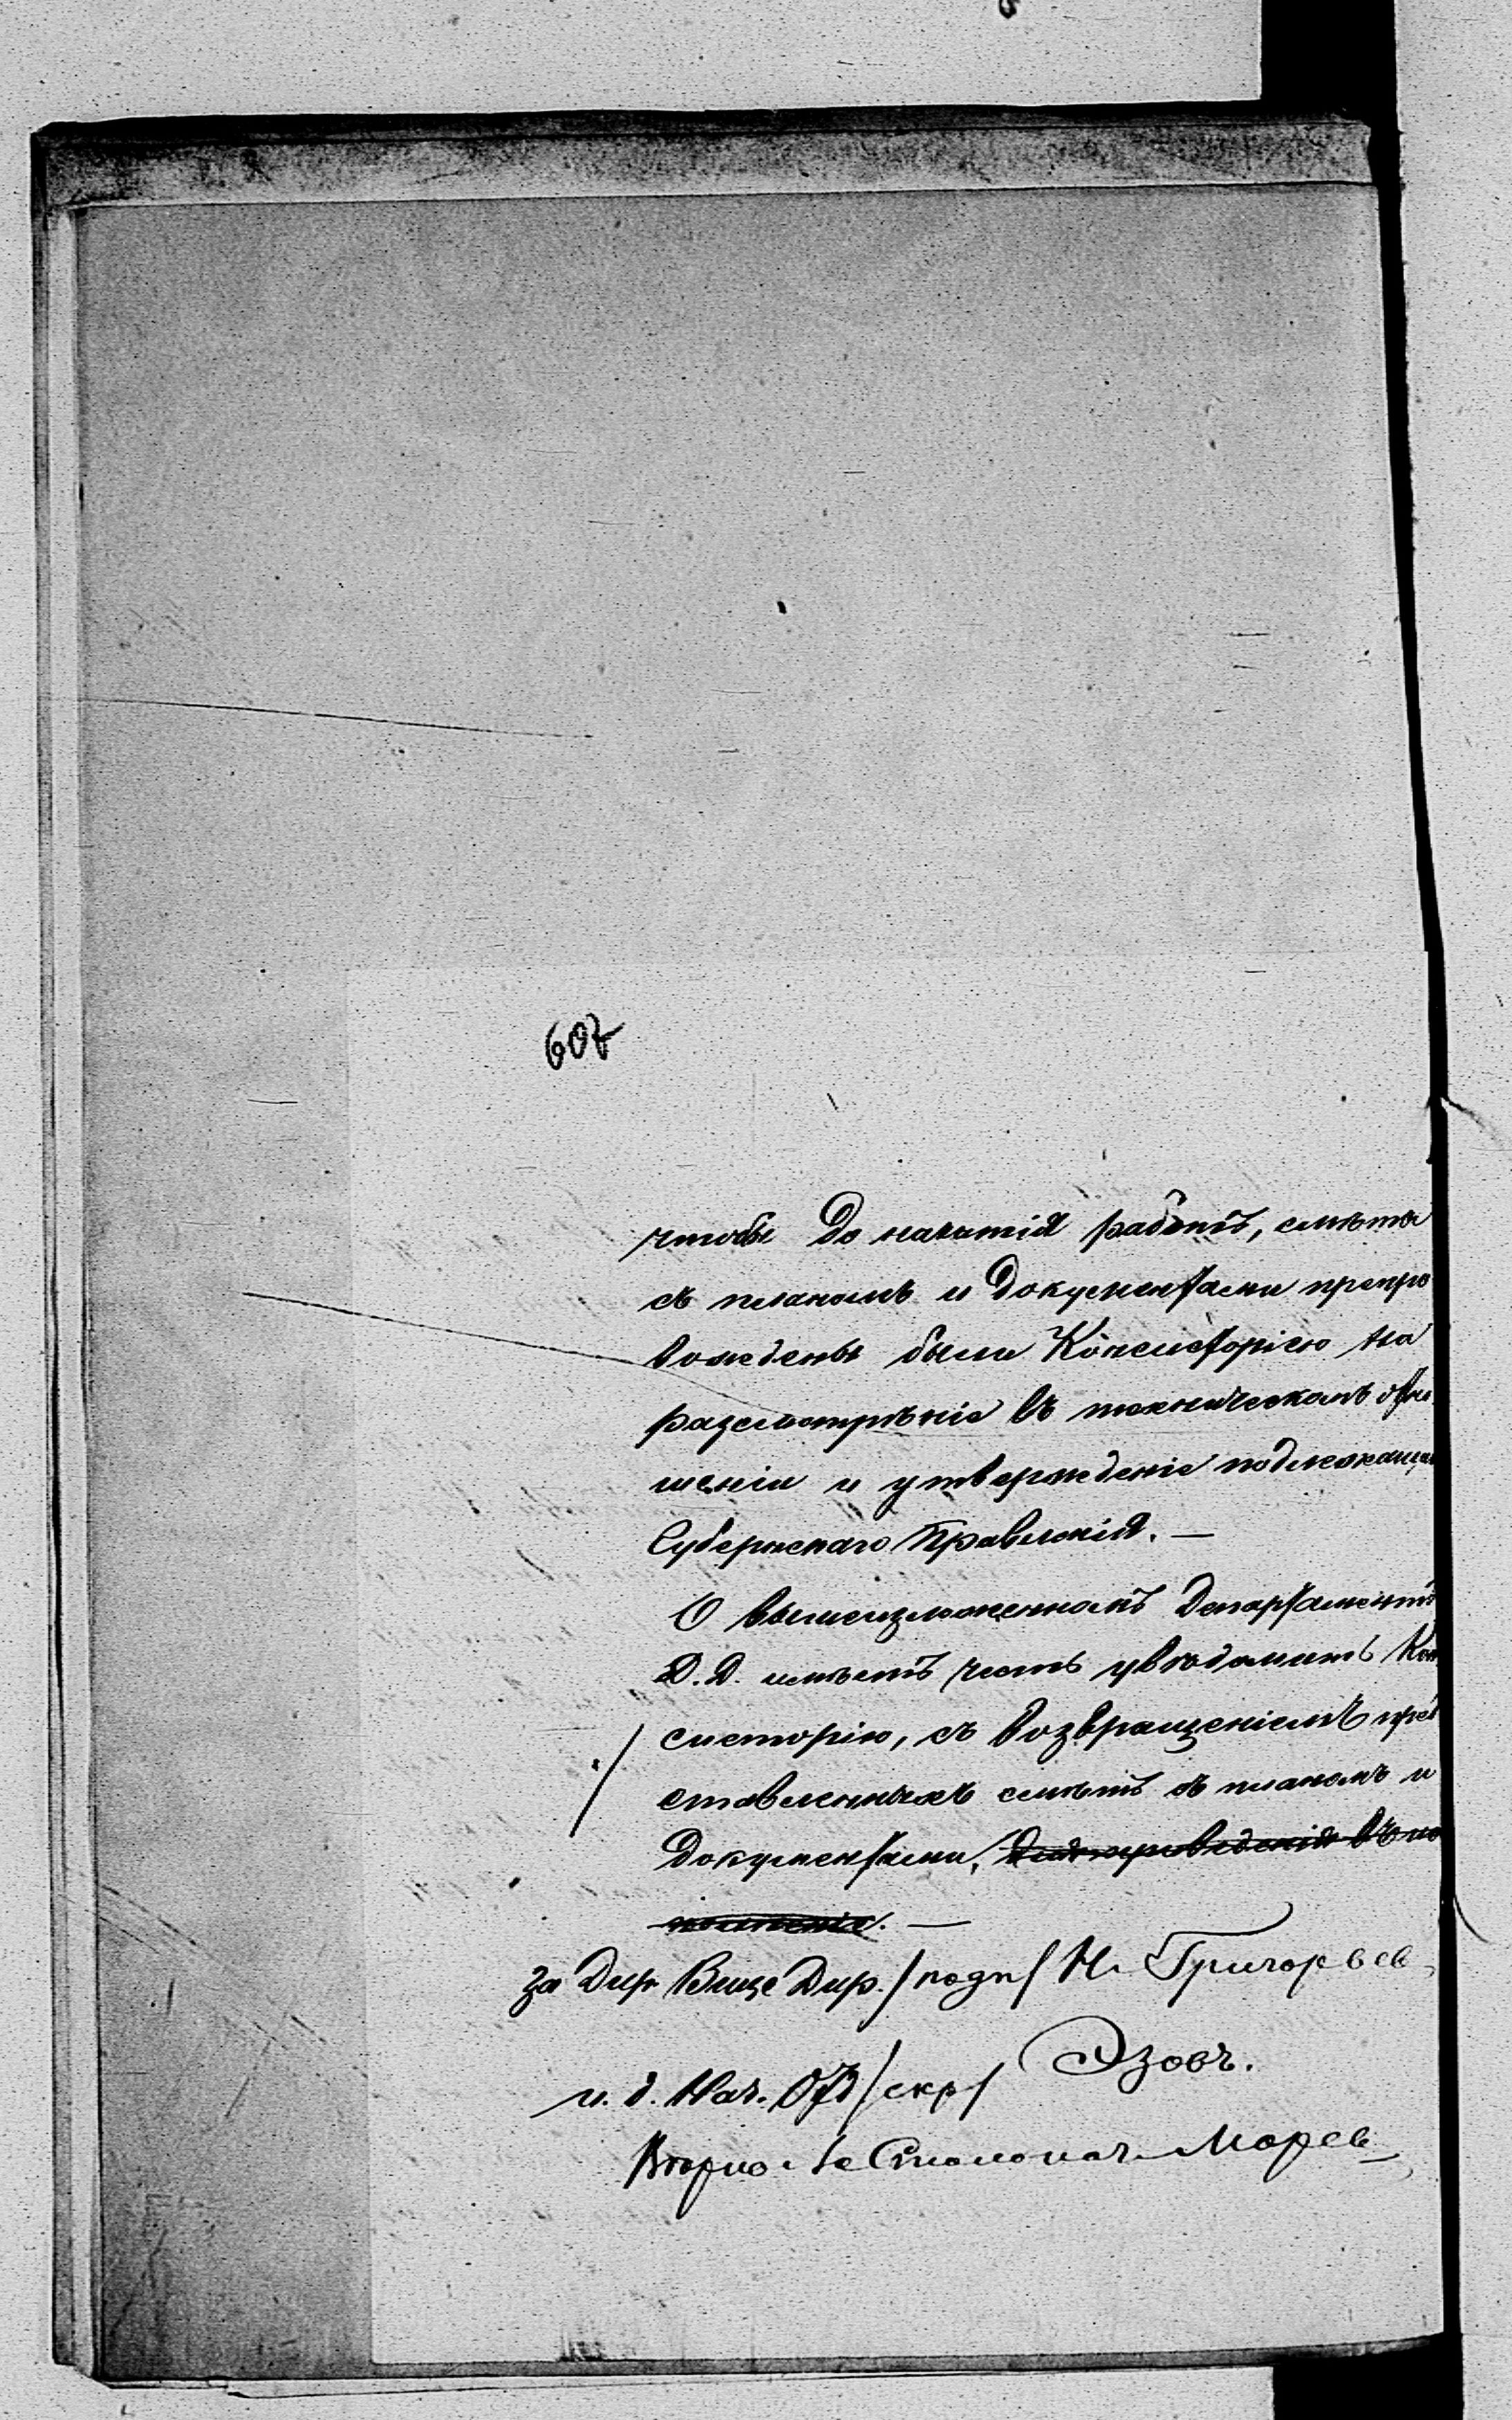 607
чтобы до начатія работъ, смѣта
съ планомъ и документами препро
вождены были Консисторіею на
разсмотрѣніе въ техническомъ отно
шеніи и утвержденіе подлежащаго
Губернскаго Правленія. —
О вышеизложенномъ Департаментъ
Д. Д. имѣетъ честь увѣдомить Кон
систорію, съ возвращеніемъ пред
ставленныхъ смѣтъ съ планомъ и
документами, для приведенія въ ис
полненіе. —
За Дир. Вице Дир. /подп/ Н. Григорьев
и. д. Нач. Отд /скр/ Эзовъ.
Вѣрно: Столонач. Морев